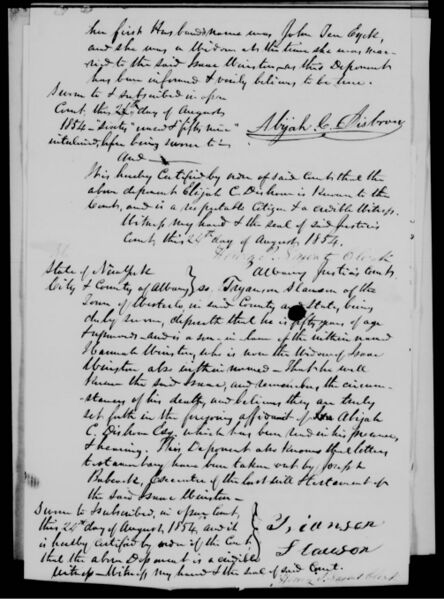 her first Husbands name was John Ten Eyck,
and she was a Widow at the time she was mar-
ried to the said Isaac Winston, as this Deponent
has been informed & verily believes to be true.
Sworn to & subscribed in open
Court this 24th day of August
1854
interlined, before being sworn to
Abijah C. Disbrow
And
It is hereby Certified by order of said Court that the
above deponent Elijah C Disbrow is Known to the
Court, and is a respectable Citizen & a credible Witness.
Witness my hand & the seal of said Justices
Court, this 24th day of August 1854.
Clerk
Albany Justices Court
State of New York
City & County of Albany } ss Slawson of the
Town of in said County and State, being
duly sworn, deposeth that he is fifty years of age
& upwards and is a son in law of the within named
Hannah Winston, who is now the Widow of Isaac
Winston also within named - That he well
Knew the said Isaac, and remembers the circum-
stances of his death, and believes they are truly
set forth in the foregoing affidavit of Abijah
C. Disbrow Esq. which has been read in his presence
& hearing. This Deponent also knows that letters
testamentary have been taken out by Joseph
Babcock, Executor of the last Will & testament of
the said Isaac Winston
Sworn to & subscribed, in open Court,
this 24th day of August, 1854, and it
is hereby certified by order of the Court
that the above Deponent is a credible
witness - Witness my hand & the seal of said Court.
Slawson